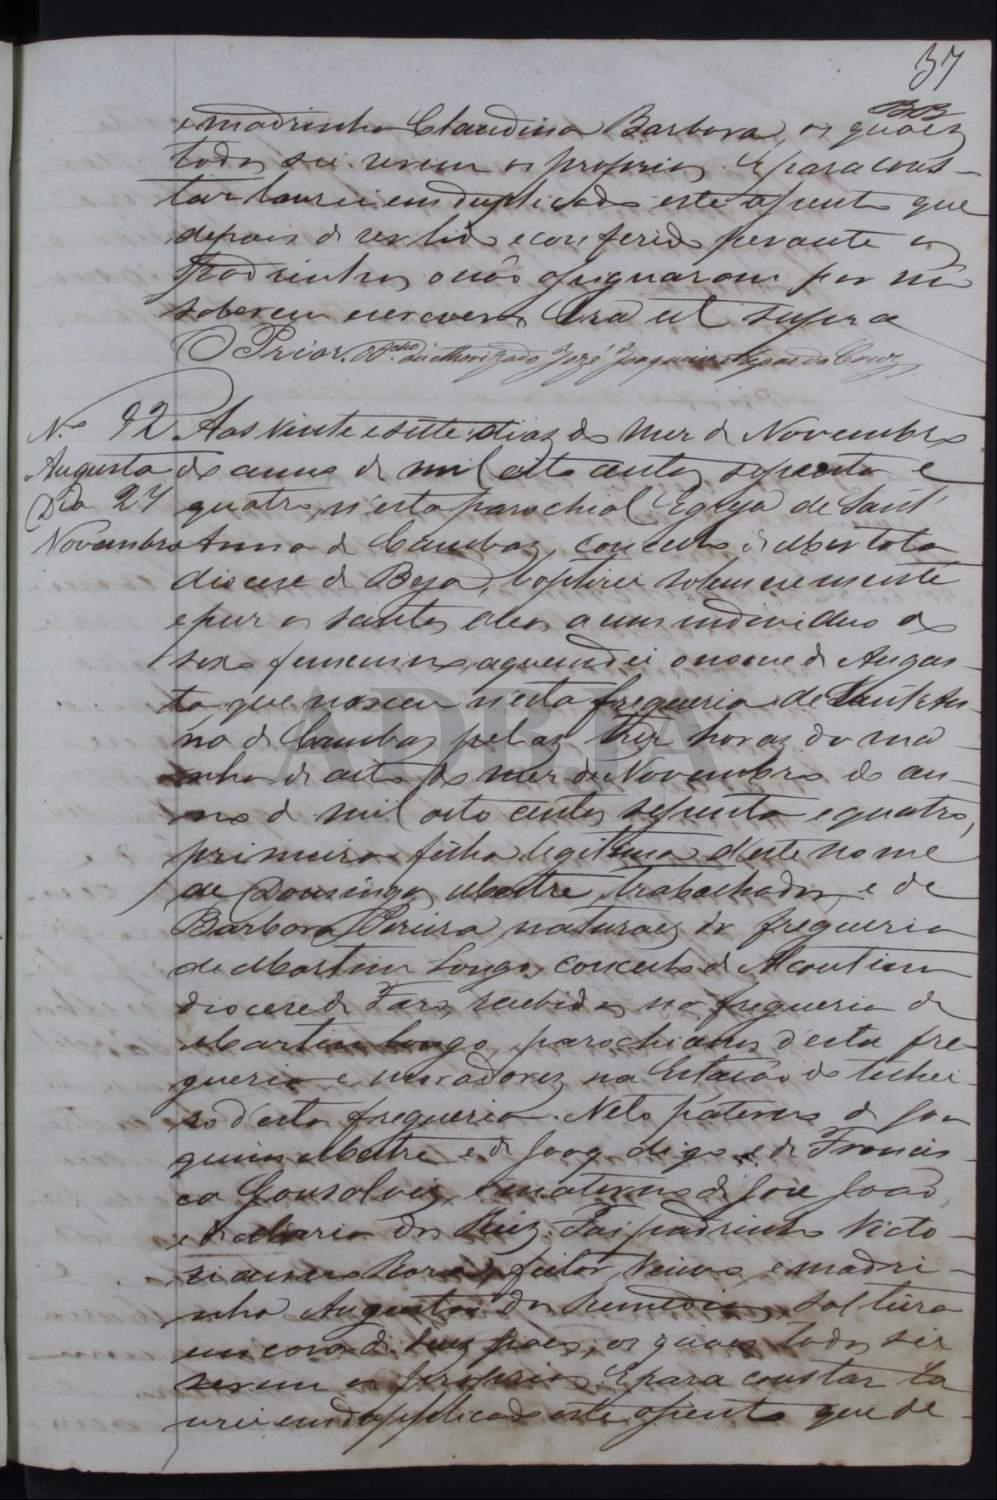 37
e madrinha Claudina Barbora, os quaes
todos sei serem os proprios. E para cons-
tar lavrei em duplicado este assento que
depois de ser lido e conferido perante os
Padrinhos o não assignaram por não
saberem escrever. Era ut supra
O Prior authorizado José Joaquim
N.º 92 Aos vinte e sete dias do mez de Novembro
Augusta do anno de mil oito centos sepenta e
Dia 27 quatro, n'esta parochial Egreja de Sant'
Novembro Anna de Cambas, concelho de Mertola
diocese de Beja, baptizei solemnemente
e puz os santos oleos a um individuo do
sexo femenino, a quem dei o nome de Augus-
ta que nasceu n'esta freguezia de Sant'An-
na de Cambas pelas trez horas da ma-
nhã de oito do mez de Novembro do an-
no de mil oito centos sepenta e quatro,
primeira filha legitima d'este nome
de Domingos Mestre, trabalhador, e de
Barbora Pereira, naturaes da freguezia
de Martim Longo, concelho de Alcoutim
diocese de Faro, recebidos na freguezia de
Martim Longo, parochianos d'esta fre-
guezia e moradores na Estação do
d'esta freguezia. Neta paterna de Joa
quim Mestre e de Joaq digo e de Francis-
ca Gonsalves, e materna de José João,
e de Maria dos Reiz. Foi padrinho Victo-
rianno Roza, feitor, Viuvo, e madri-
nha Augusta dos Remedios, solteira
em caza de seus paes, os quaes todos sei
serem os proprios. E para constar la
vrei em duplicado este assento que de-
ADBJA